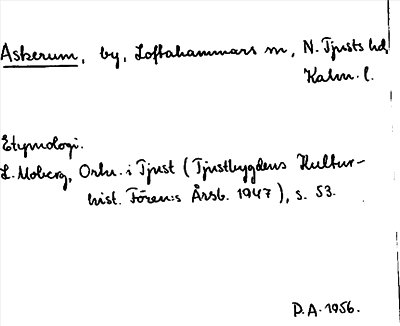 Askerum, by, Loftahammars sn, N. Tjusts hd
Kalm. l.
Etymologi.
L. Moberg, Ortn. i Tjust (Tjustbygdens Kultur-
hist. Fören:s Årsb. 1947), s. 53.
P.A. 1956.